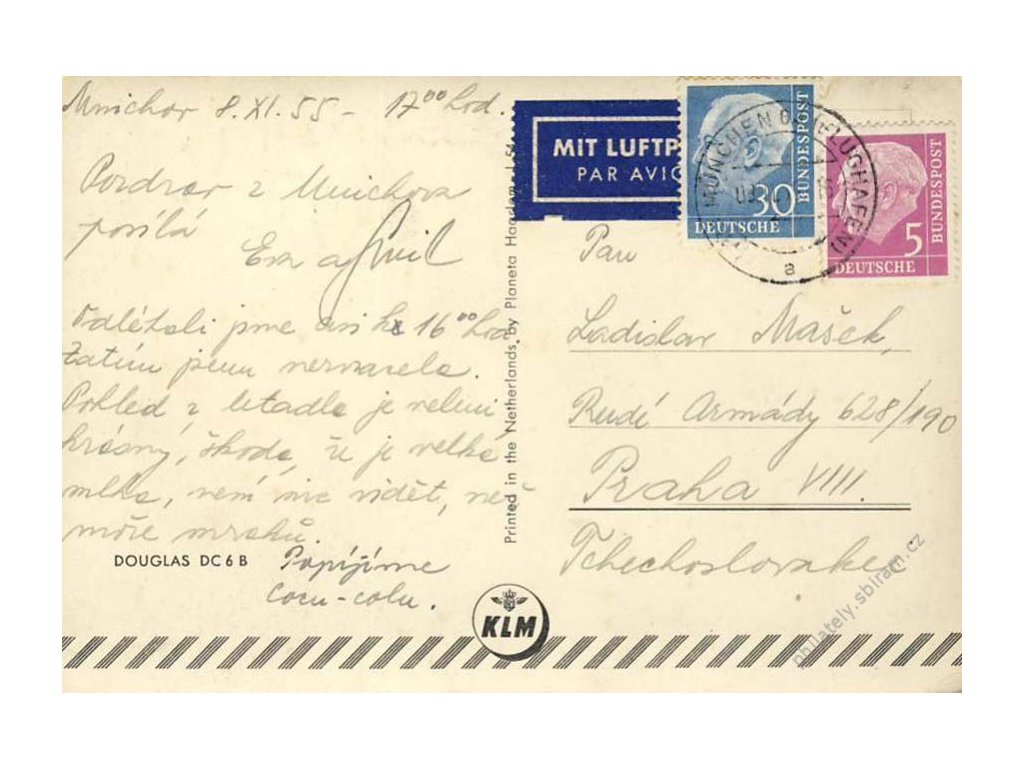 Mnichov 8.XI.55 - 17⁰⁰ hod.
Pozdrav z Mnichova
posílá
Eva a
Odlétali jsme asi k 16⁰⁰ hod
Zatím jsem nezvracela.
Pohled z letadla je velmi
krásný, škoda, že je velká
mlha, není nic vidět, než
moře mraků.
Popíjíme
Cocu-colu.
DOUGLAS DC6B
Printed in the Netherlands by Planeta Haarlem
KLM
MIT LUFTP
PAR AVIO
30
DEUTSCHE
BUNDESPOST
5
DEUTSCHE
BUNDESPOST
MÜNCHEN (FLUGHAFEN)
a
Pan
Ladislav Mašek,
Rudé Armády 628/190
Praha VIII.
Tchechoslovakei
philately.sbiram.cz